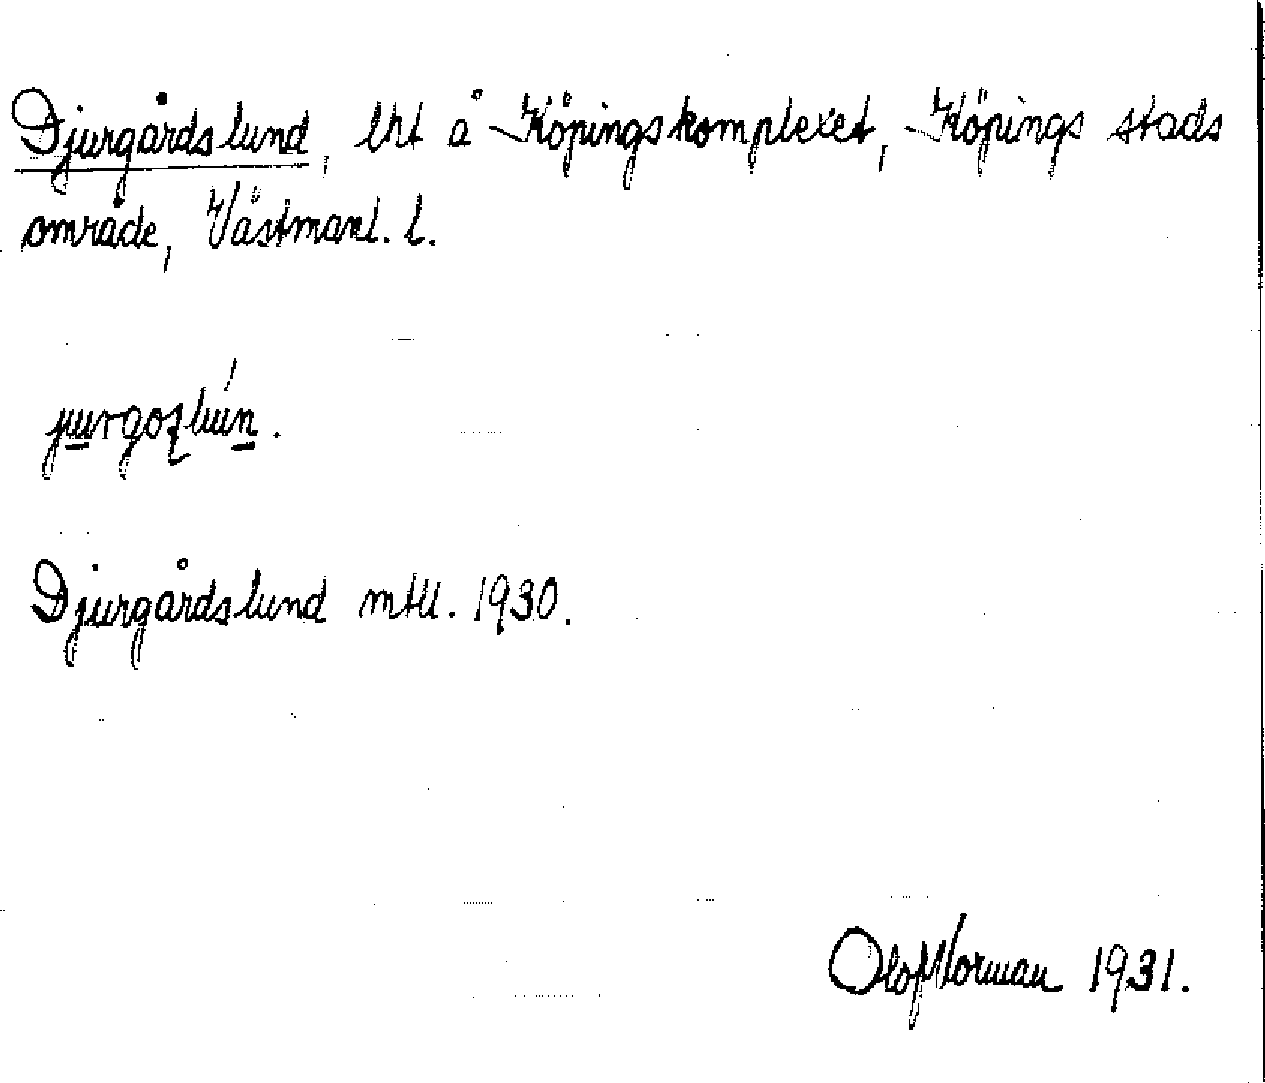 Djurgårdslund, lht å Köpingskomplexet, Köpings stads
område, Västmanl. l.
Djurgårdslund mtll. 1930.
Olof Norman 1931.